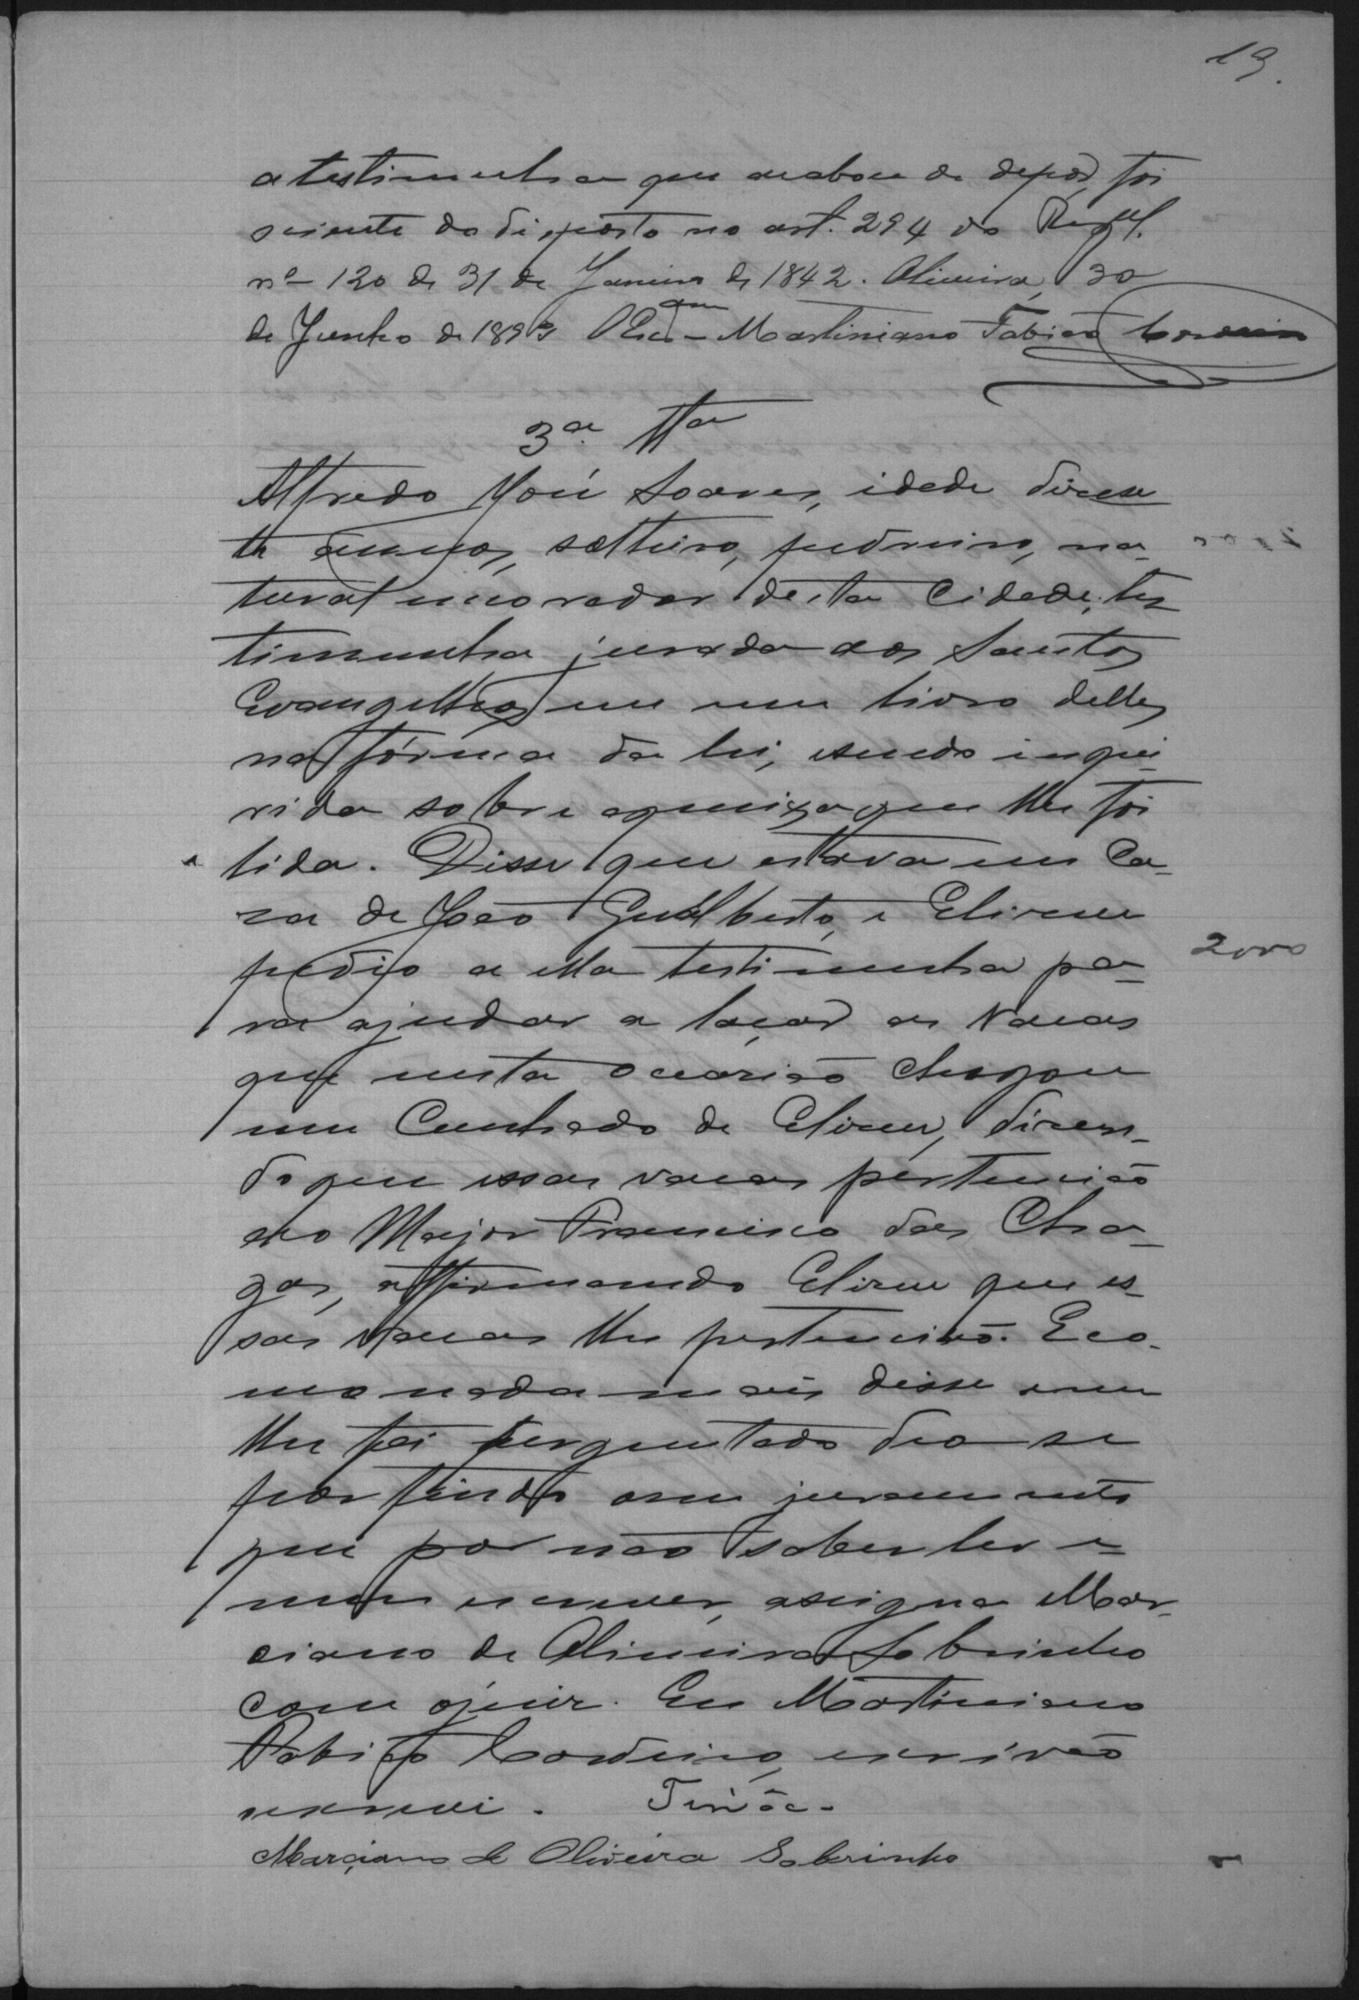 19.
a testimunha que acabou de depôr, foi
sciente do disposto no art. 294 do Regul.
nº 120 de 31 de Janeiro de 1842. Oliveira, 30
de Junho de 1893 O Escam Martiniano Fabião Cordeiro
3ª Ttª
Alfredo José Soares, idade dezese
te annos, solteiro, pedreiro, na-
tural e morador desta Cidade, tes
timunha jurada aos Santos
Evangelhos em um livro delles
na fórma da lei, esendo inque
rida sobre aqueixa que lhe foi
lida. Disse que estava em Ca-
za de João Gualberto, e Elizeu
pedio a ella testimunha pa-
ra ajudar a laçar as Vacas
que nesta occazião chegou
um Cunhado de Elizeu, dizen-
do que essas vacas pertencião
ao Major Francisco das Cha-
gas, affirmando Elizeu que es-
sas vacas lhe pertencião. E co-
mo nada mais disse nem
lhe foi perguntado deo se
por findo oseu juramento
que por não saber ler e
nem escrever, assigna Mar-
ciano de Oliveira Sobrinho
com ojuiz. Eu Martiniano
Fabião Cordeiro, escrivão
oescrevi.
Marçiano de Oliveira Sobrinho
2000